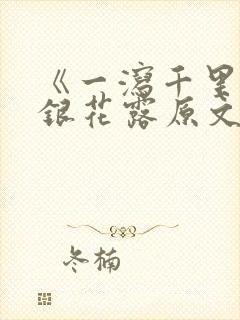 《一泻千里
银花露原文
冬楠